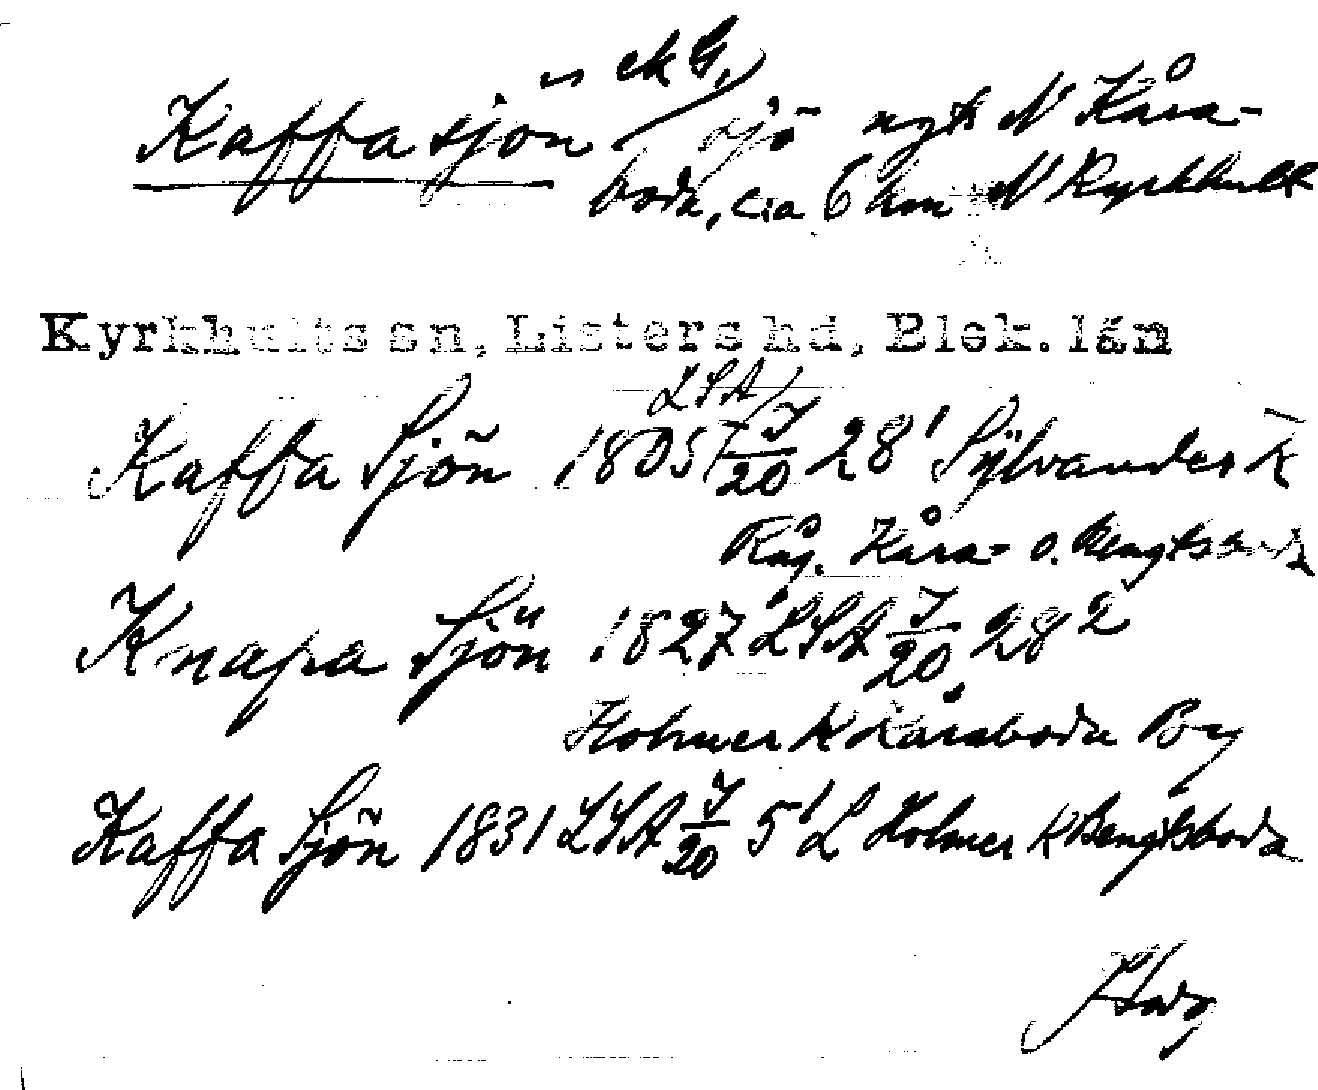 ek G.
Kaffasjön sjö nytt N Kåra-
boda, c:a 6 km N Kyrkhult
Kyrkhults sn, Listers hd, Blek. län
LSA
Kaffa Sjön 1805 I/20 28¹ Sylvander K
Råg. Kåra- o. Bengtsboda
Knapa Sjön 1827 LSA I/20 28²
Holmer K Kåraboda By
Kaffa Sjön 1831 LSA I/20 5¹ L Holmer K Bengtsboda